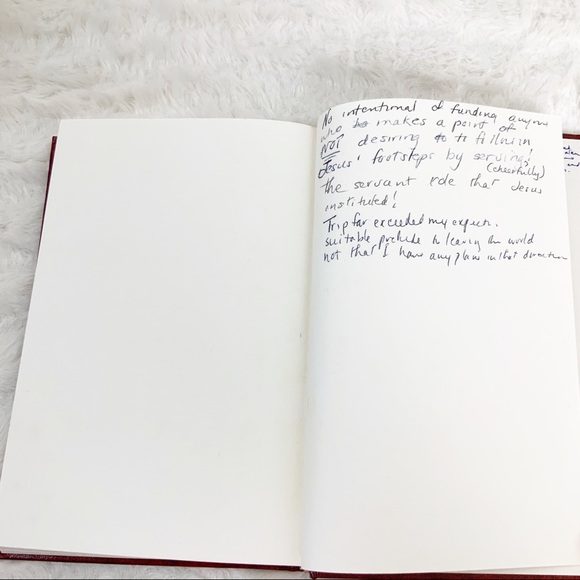 No intentional of funding anyone
who makes a point of
NOT desiring to follow in
Jesus' footsteps by serving!
(cheerfully)
the servant role that Jesus
instituted!
Trip far exceeded my expect.
suitable prelude to leaving the world
not that I have any plans in that direction